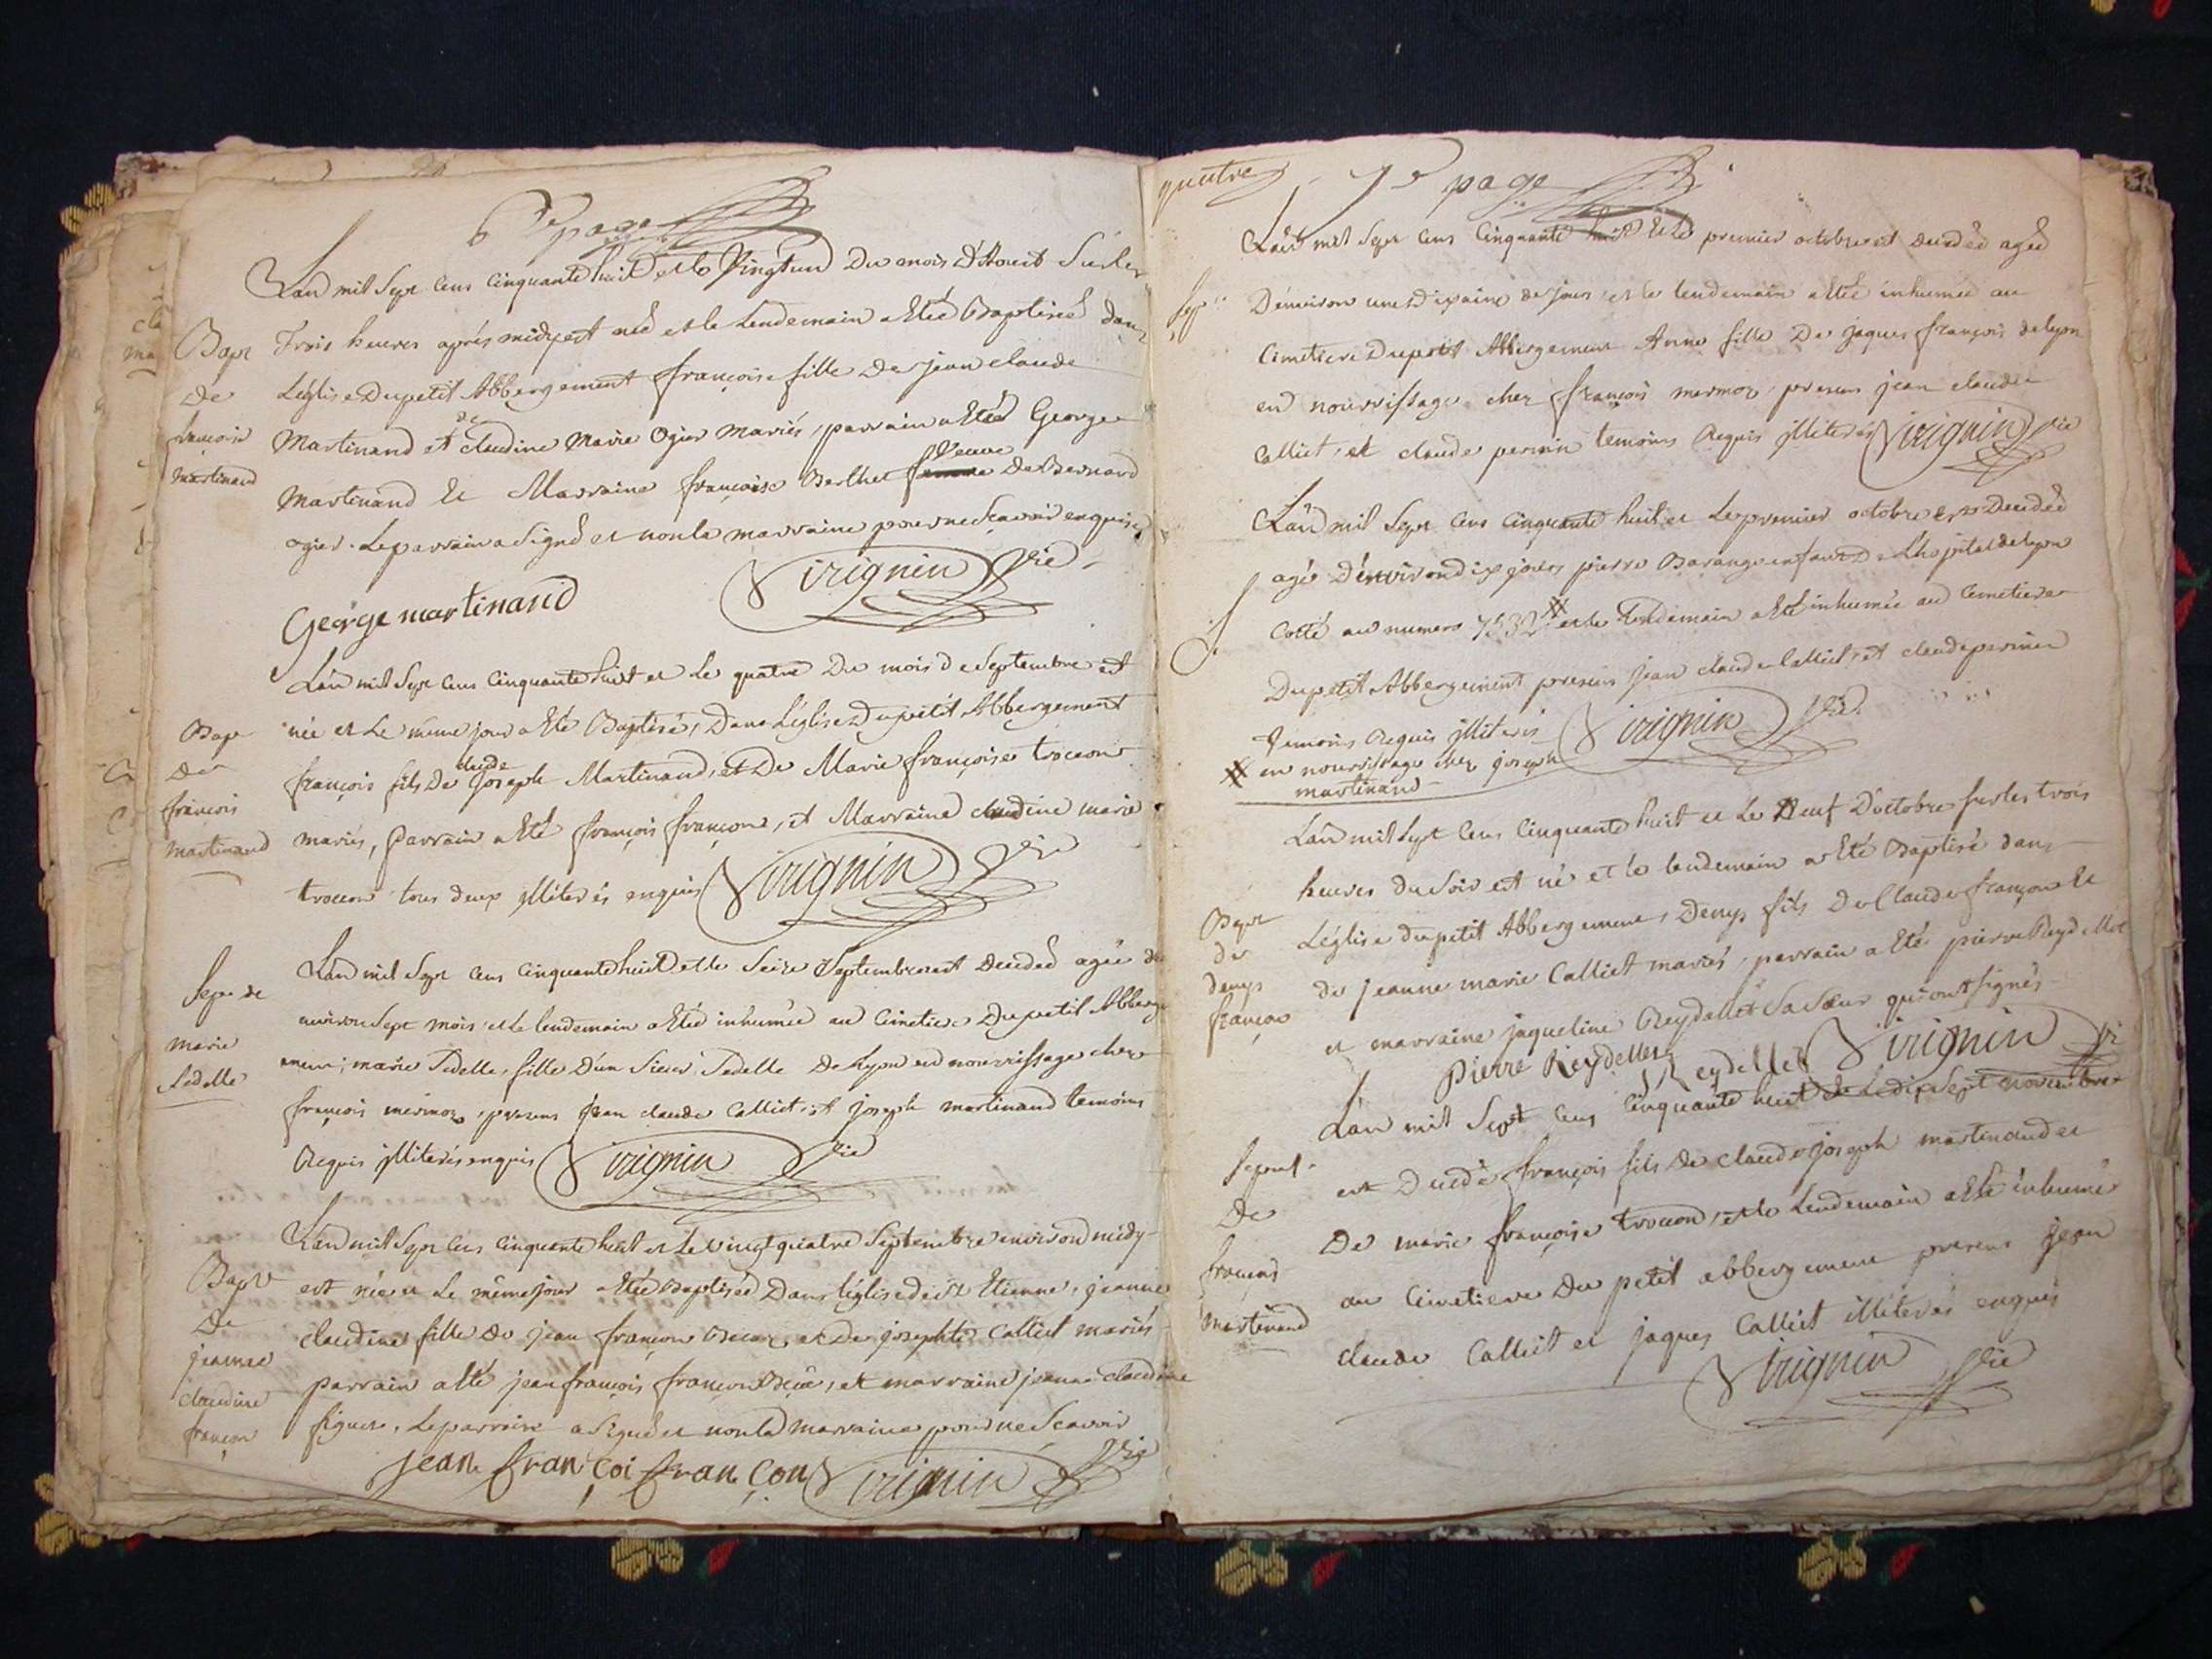 6e page
L'an mil Sept Cens Cinquante huit et le Vingt un Du mois D'Aoust Sur les
Trois heures aprés midy est neé et le Lendemain a Eté Baptiseé dans
L'église Du petit Abbergement françoise fille De jean claude
Martinand et de claudine Marie Ogier Mariés, parrain a Eté George
Martinand Et Marraine françoise Berthet femme Veuve De Bernard
ogier. Le parrain a Signé et non la marraine pour ne Scavoir enquise
Bapt
De
françoise
Martinand
George martinand
Virignin Vic
L'an mil Sept Cens Cinquante huit et Le quatre Du mois de Septembre est
né et Le même jour a Eté Baptisé, Dans L'église Du petit Abbergement
françois fils De claude joseph Martinand, et De Marie françoise trocon
mariés, Parrain a Eté françois françon, et Marraine claudine marie
trocon tous deux illiterés enquis Virignin Vic
Bapt
De
françois
Martinand
L'an mil Sept Cens Cinquante huit et le Seize Septembre est Decedeé ageé d'
environ Sept mois et Le lendemain a Eté inhumée au Cimetiere Du petit Abberge
ment, marie Sedelle, fille D'un Sieur Sedelle De Lyon en nourrissage chez
françois mermoz, presens jean claude Calliet et joseph martinand temoins
Requis illiterés enquis Virignin Vic
Sep. de
Marie
Sedelle
L'an mil Sept Cens Cinquante huit et Le Vingt quatre Septembre environ midy
est née et Le même jour a Eté Baptiseé Dans l'église de St Etienne, jeanne
claudine fille De jean françon et De josephte Calliet mariés
parrain a Eté jean françois françon, et marraine jeanne claudine
Le parrain a Signé et non la Marraine pour ne Scavoir
Bapt
De
jeanne
claudine
françon
jean françoi françon Virignin Vic
quatre 7e page
L'an mil Sept Cens Cinquante huit Et le premier octobre est Decedeé ageé
D'environ une dixaine de jours et le lendemain a Eté inhumeé au
Cimetiere Du petit Abbergement Anne fille De jaques françois de lyon
en nourrissage chez françois mermoz, presens jean claude
Calliet, et claude perrin temoins Requis illiterés Virignin Vic
Sep
L'an mil Sept Cens Cinquante huit et Le premier octobre est Decedé
agé D'environ dix jours pierre Barange enfant De L'hopital de lyon
Cotté au numero 7532 # et le Lendemain a Eté inhumé au Cimetiere
Du petit Abbergement presens jean claude Calliet, et claude perrin
Temoins Requis illiterés Virignin Vic
# en nourrissage chez joseph
martinand
S.
L'an mil Sept Cens Cinquante huit et Le Neuf D'octobre sur les trois
heures du Soir est né et le lendemain a Eté Baptisé dans
L'église du petit Abbergement, Denys fils De Claude françon Et
de jeanne marie Calliet mariés, parrain a Eté pierre Reydellet
et marraine jaqueline Reydellet Sa Sœur qui ont signés
Bapt
de
denys
françon
Pierre Reydellet J Reydellet Virignin Vic
L'an mil Sept Cens Cinquante huit et Le dix Sept Novembre
est Decedé françois fils De claude joseph martinand et
De marie françoise trocon, et le Lendemain a Eté inhumé
au Cimetiere Du petit abbergement presens jean
claude Calliet et jaques Calliet illiterés enquis
Virignin Vic
Sepult.
De
françois
Martinand